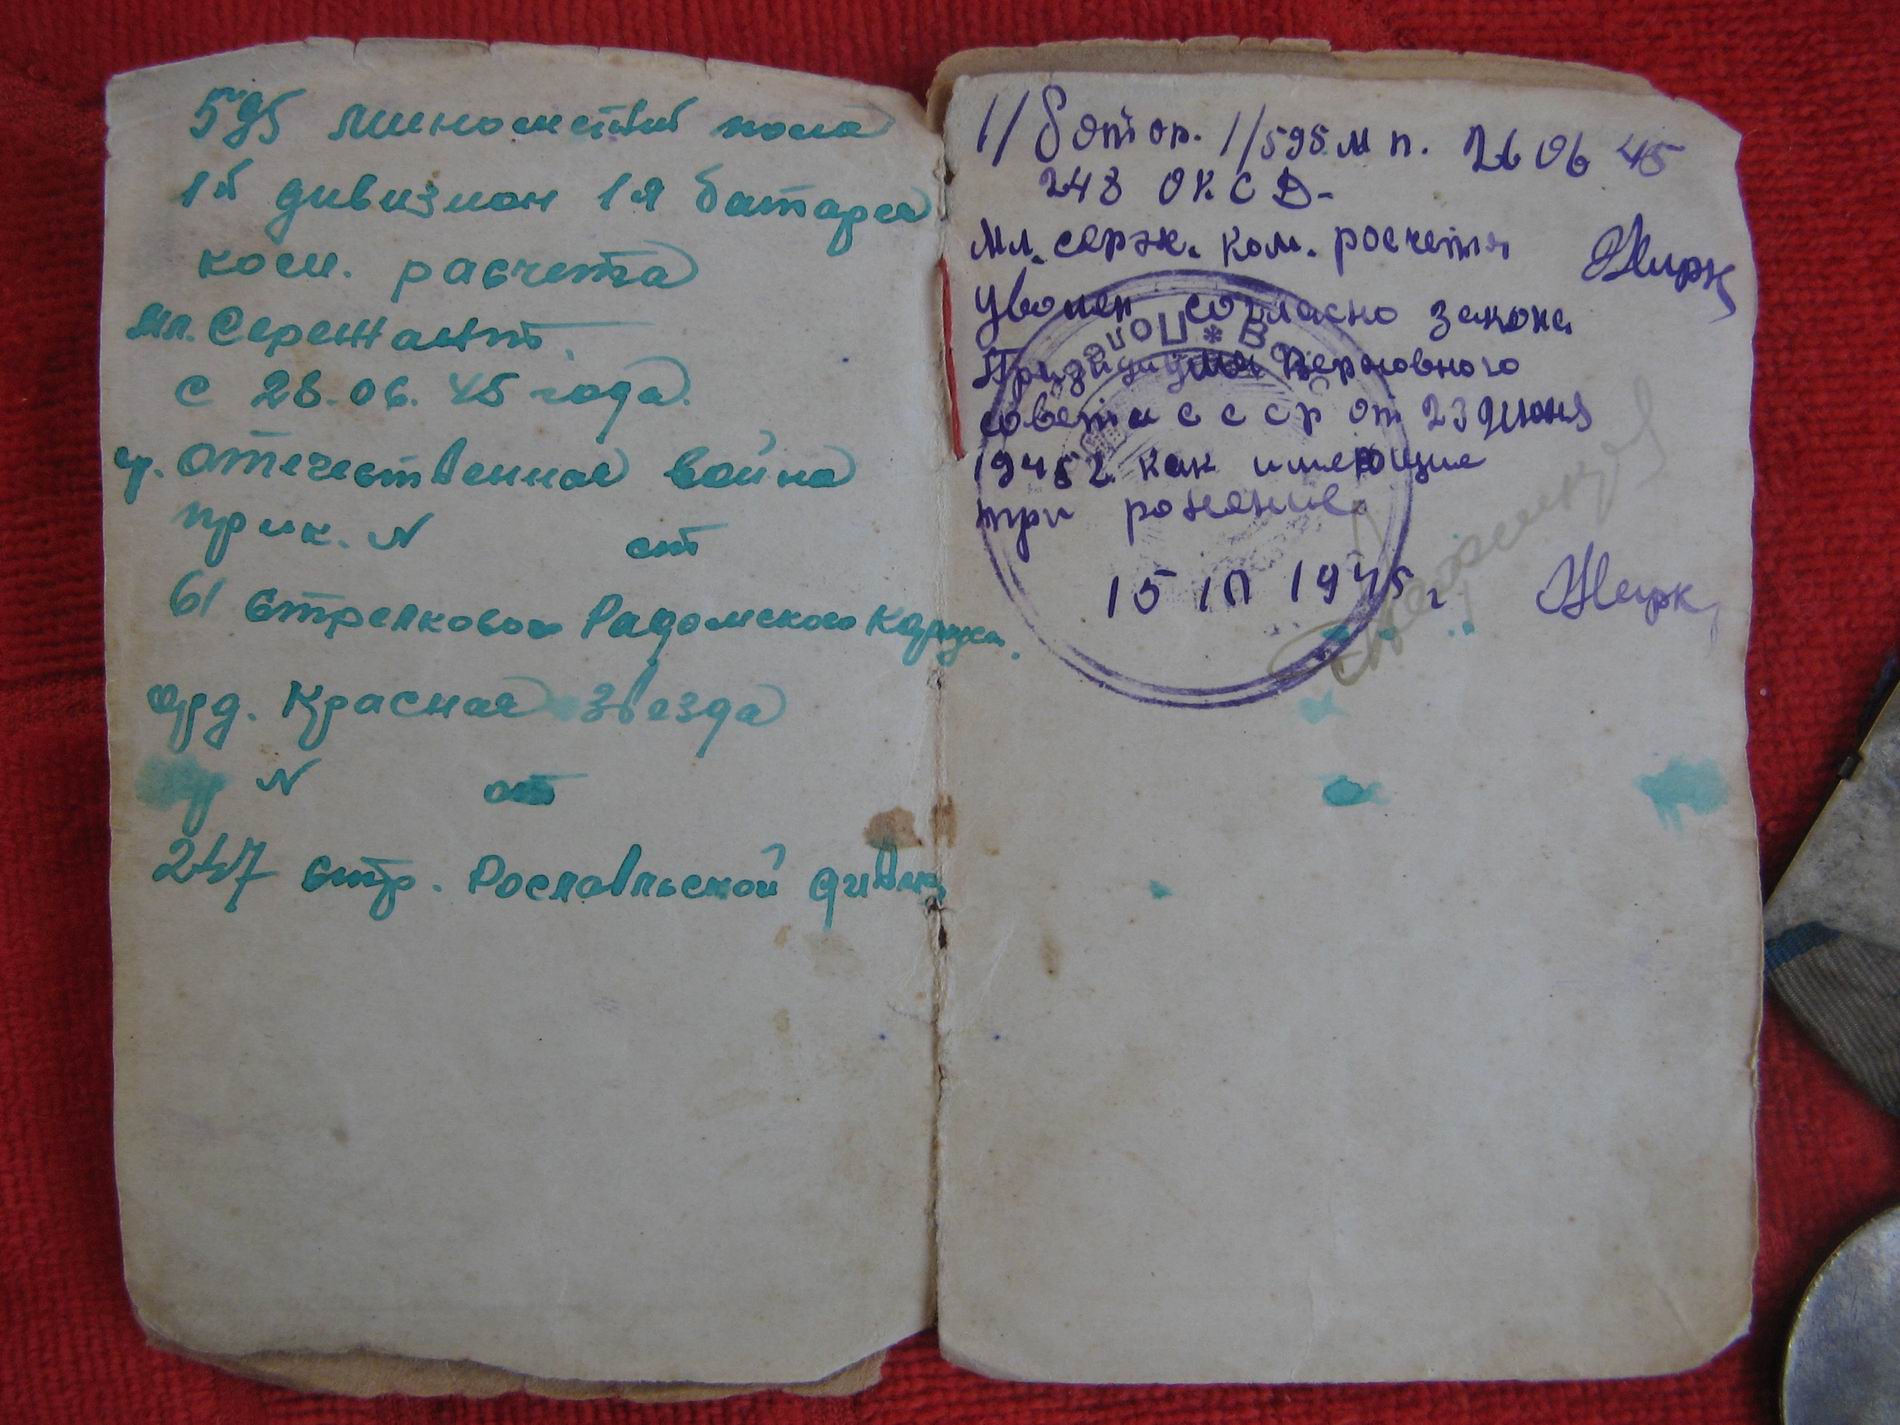 595 минометный полк
1й дивизион 1я батарея
ком. расчета
мл. Сержант.
с 28.06.45 года.
ор. Отечественная война
прик. N от
61 стрелкового Радомского корпуса.
орд. Красная Звезда
N от
247 стр. Рославльской дивиз
1/ батар. 1/595 м п. 26 06 45
248 ОКСД-
мл. серж. ком. росчета
Уволен согласно закона
Призидиума Верховного
совета СССР от 23 июня
1945 г как имеющие
три ранение
15 1945 г